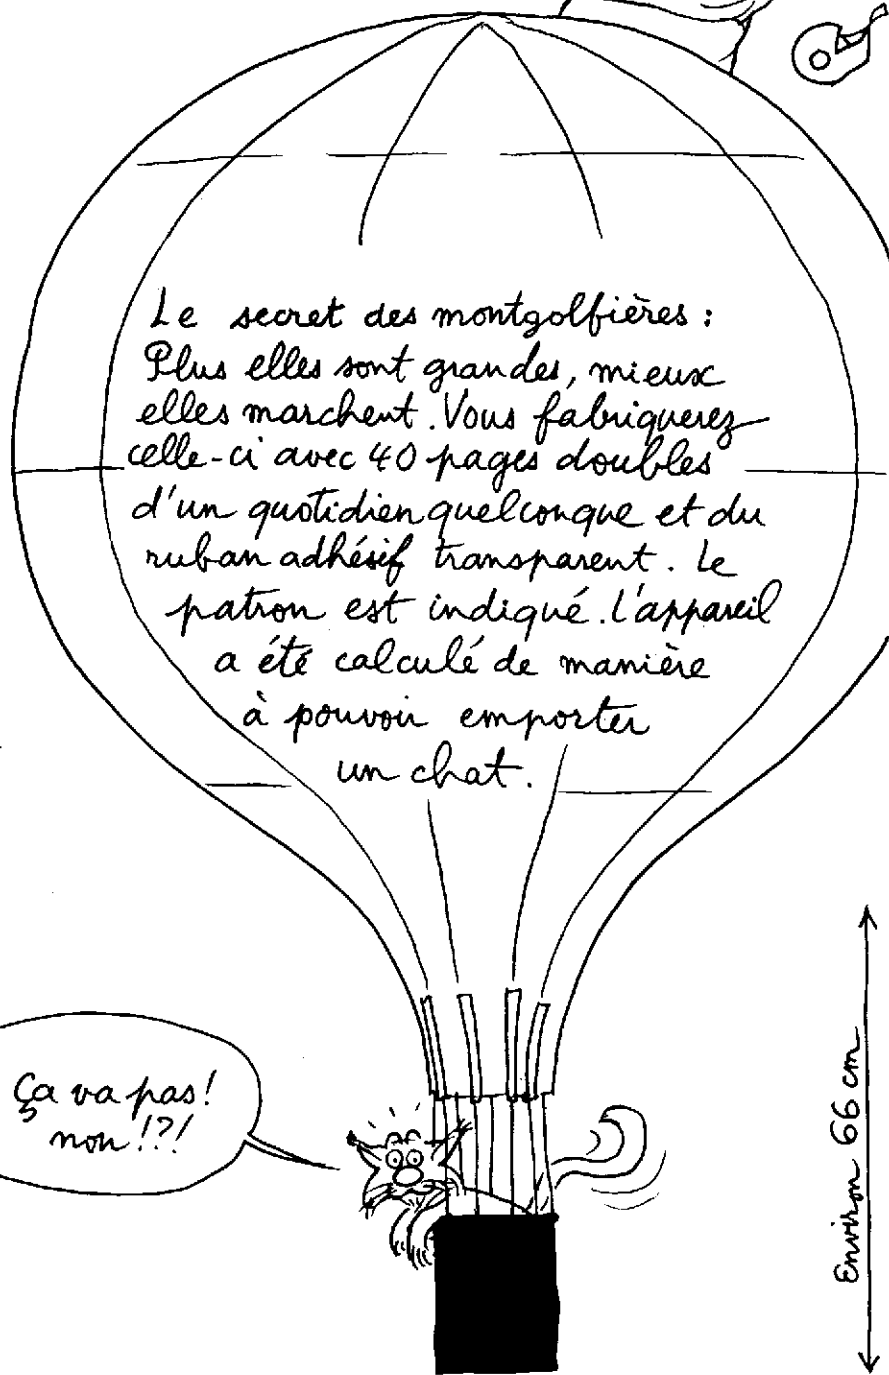 Le secret des montgolfières :
Plus elles sont grandes, mieux
elles marchent. Vous fabriquerez
celle-ci avec 40 pages doubles
d'un quotidien quelconque et du
ruban adhésif transparent. Le
patron est indiqué. L'appareil
a été calculé de manière
à pouvoir emporter
un chat.
Ça va pas !
non !?!
Environ 66 cm